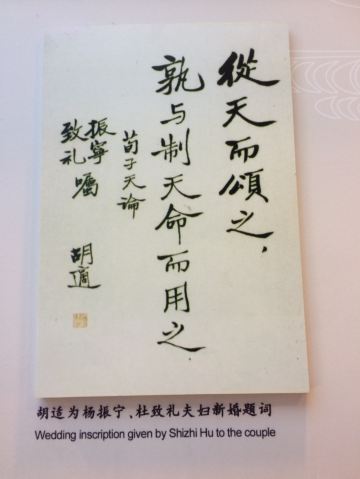 從天而頌之，
孰与制天命而用之
荀子天論
振寧
致礼 嘱
胡適
胡适为杨振宁、杜致礼夫妇新婚题词
Wedding inscription given by Shizhi Hu to the couple